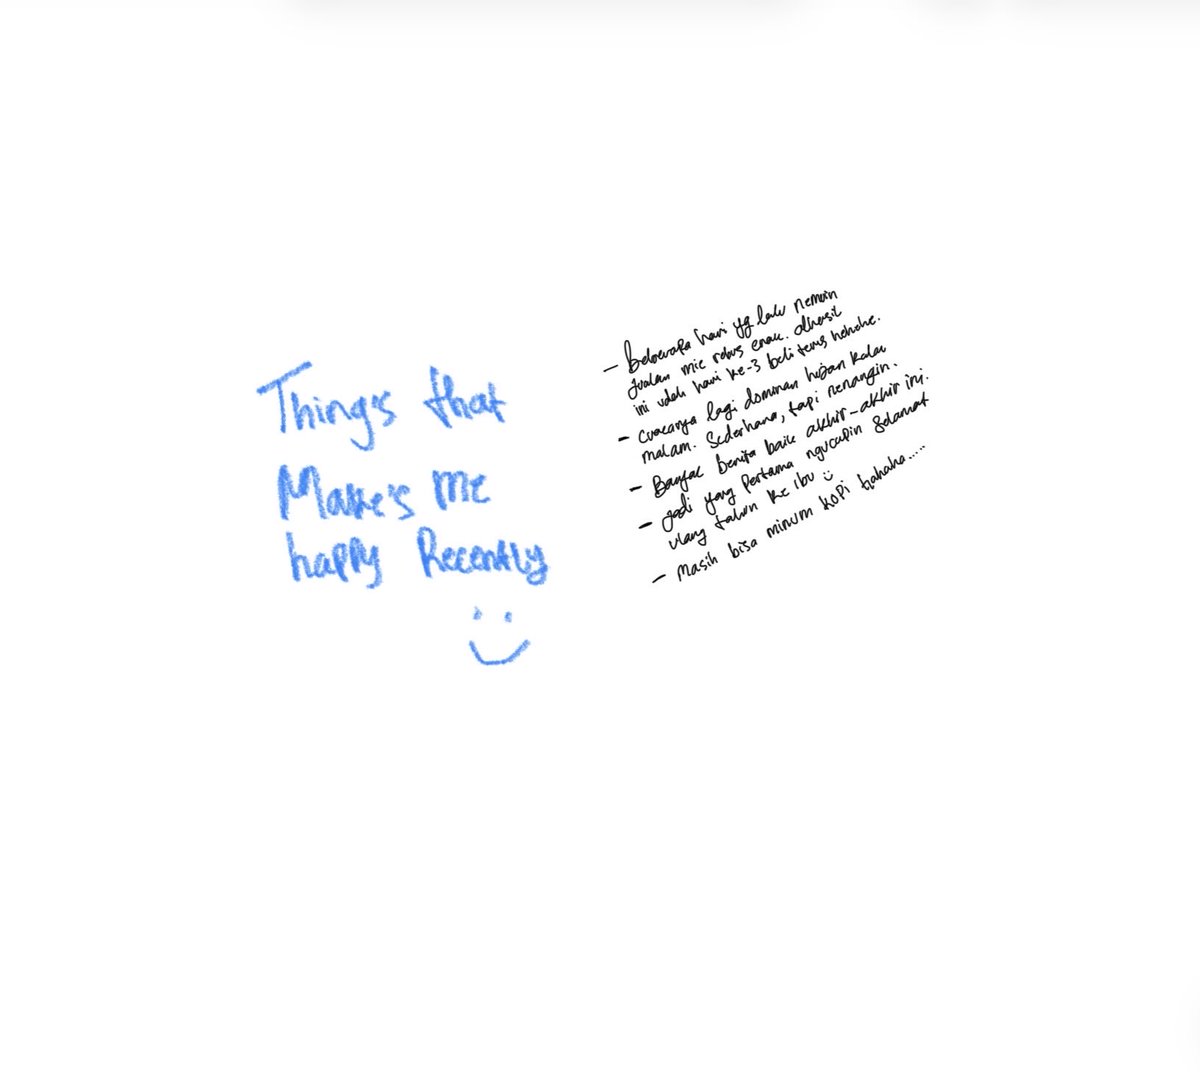 Things that
Make's me
happy Recently
- Beberapa hari yg lalu nemuin
jualan mie rebus enak.
ini udah hari ke-3 beli terus hehehe.
- cuacanya lagi dominan hujan kalau
malam. Sederhana, tapi nenangin.
- Banyak berita baik akhir-akhir ini.
- Jadi yang pertama ngucapin selamat
ulang tahun ke ibu :)
- Masih bisa minum kopi hahaha.....